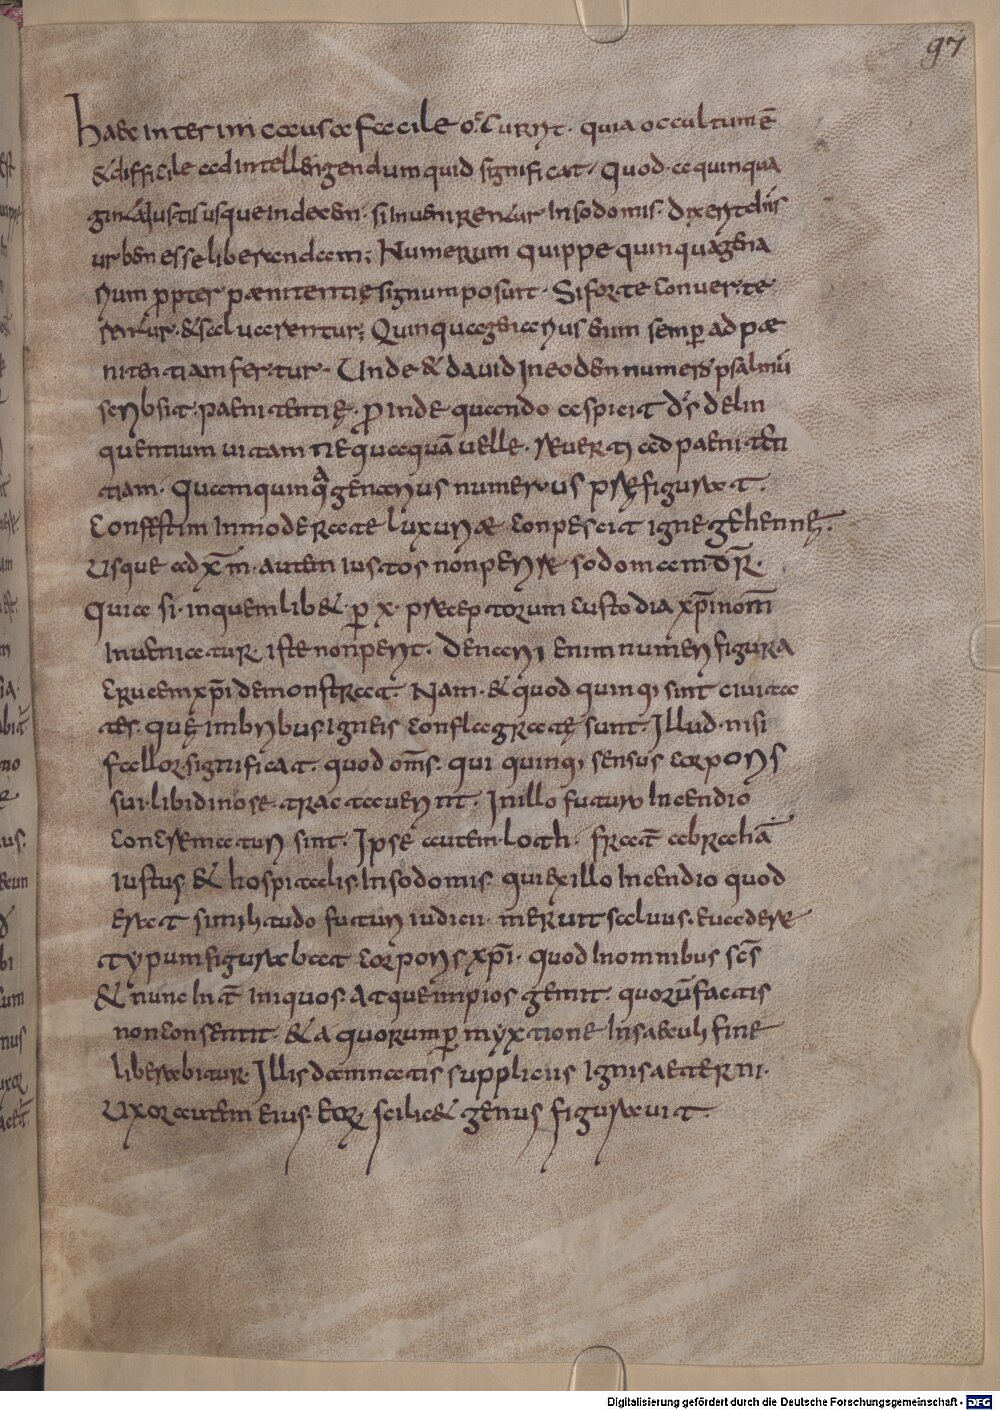 97
haec interim causa facile occurrit. quia occultum ē
& difficile ad intellegendum quid significat. Quod a quinqua
ginta iustis usque in decem. si invenirentur In sodomis. dixerit d̄s
urbem esse liberandam; Numerum quippe quinquagena
rium propter paenitentię signum posuit. Si forte conver te
rentur. & salvarentur; Quinquagenarius enim semp̄ ad pae
nitentiam fertur. Unde & david In eodem numero psalmū
scribsit paenitentię. Proinde quando aspicit d̄s delin
quentium vitam nequaquā velle. reverti ad paeniten
tiam. Quam quinquagenarius numerus pręfigurat.
Confestim Inmoderatae luxuriae conpescit igne gehennę.
Usque ad x̄m. autem iustos non perire sodomam d̄r.
Quia si. inquem lib&. p̄ x. praeceptorum custodia xp̄i nom̄
Inveniatur. iste non perit. Denarii enim numeri figura
crucem xp̄i demonstrat. Nam. & quod quinq; sint civita
tes. quę imbribus igneis conflagratę sunt. Illud. nisi
fallor significat. quod om̄s. qui quinq; sensus corporis
sui. libidinose. tractaverint. In illo futuro Incendio
concrematuri sint. Ipse autem loth. frat̄ abrahā
iustus. & hospitalis In sodomis. qui ex illo Incendio quod
erat similitudo futuri iudicii. meruit salvus. Evadere
typum figurabat corporis xp̄i. quod In omnibus sc̄s
& nunc Int̄ iniquos. Atque impios gemit. quorū factis
non consentit. & a quorum p̄myxtione In saeculi fine
liberabitur. Illis damnatis suppliciis Ignis aeterni.
Uxor autem eius. eorum scilic& genus figuravit.